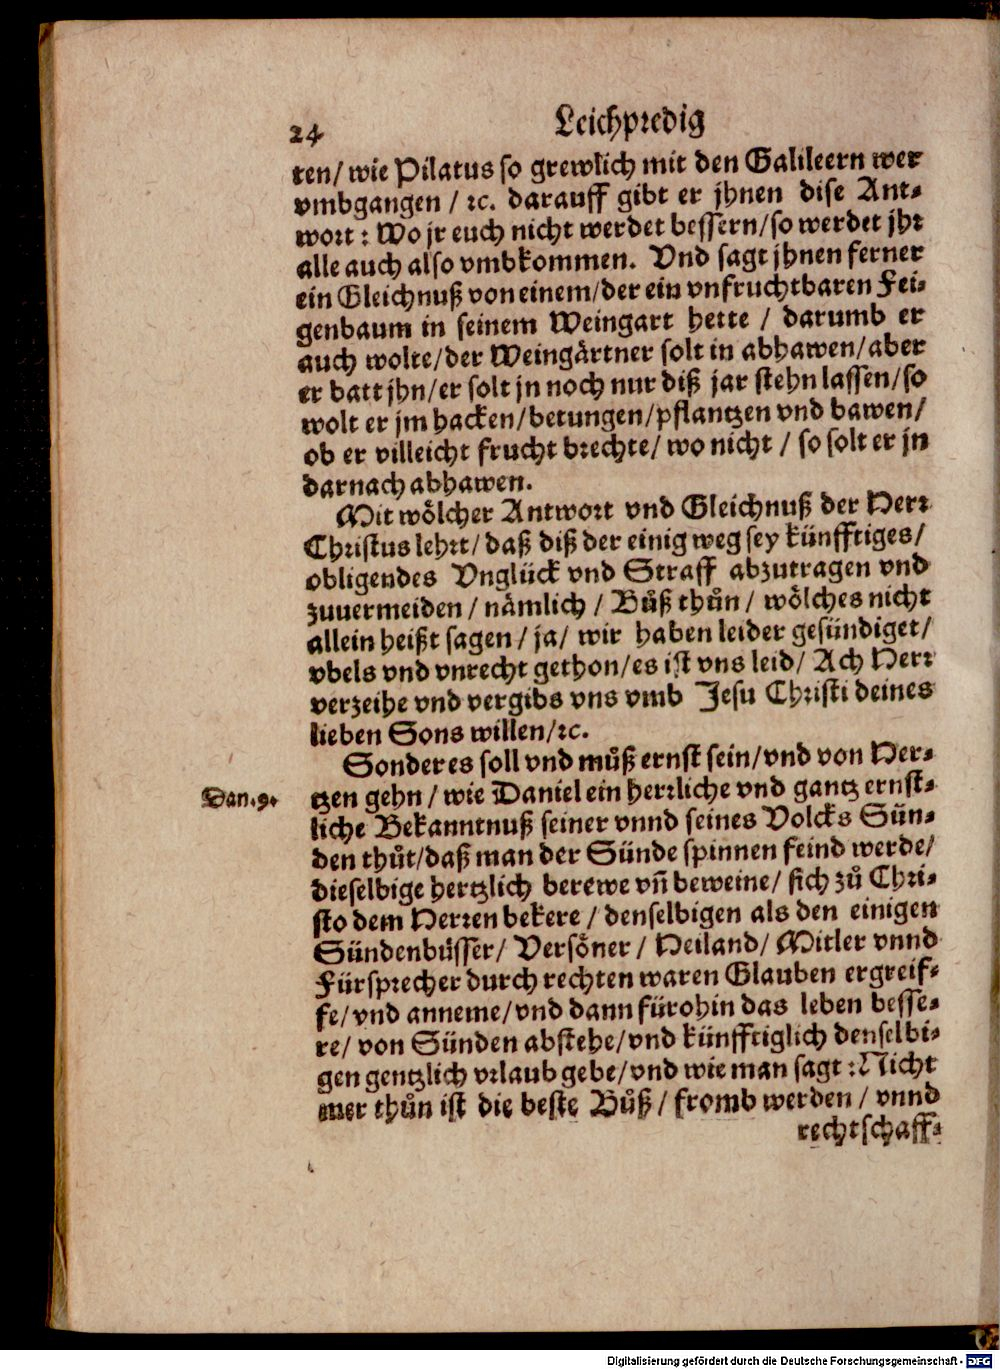 24 Leichpredig
ten/ wie Pilatus so grewlich mit den Galileern wer
vmbgangen / ꝛc. darauff gibt er jhnen dise Ant⸗
wort: Wo jr euch nicht werdet bessern/so werdet jhr
alle auch also vmbkommen. Vnd sagt jhnen ferner
ein Gleichnuß von einem/der ein vnfruchtbaren Fei⸗
genbaum in seinem Weingart hette / darumb er
auch wolte/der Weingärtner solt in abhawen/aber
er batt jhn/er solt jn noch nur diß jar stehn lassen/so
wolt er jm hacken/betungen/pflantzen vnd bawen/
ob er villeicht frucht brechte/ wo nicht / so solt er jn
darnach abhawen.
Mit wölcher Antwort vnd Gleichnuß der Herr
Christus lehrt/ daß diß der einig weg sey künfftiges/
obligendes Vnglück vnd Straff abzutragen vnd
zuuermeiden / nämlich / Bůß thůn / wölches nicht
allein heißt sagen / ja/ wir haben leider gesündiget/
vbels vnd vnrecht gethon/es ist vns leid/ Ach Herr
verzeihe vnd vergibs vns vmb Jesu Christi deines
lieben Sons willen/ꝛc.
Sonder es soll vnd můß ernst sein/vnd von Her⸗
Dan.9. tzen gehn / wie Daniel ein herrliche vnd gantz ernst⸗
liche Bekanntnuß seiner vnnd seines Volcks Sün⸗
den thůt/daß man der Sünde spinnen feind werde/
dieselbige hertzlich berewe vñ beweine/ sich zů Chri⸗
sto dem Herren bekere / denselbigen als den einigen
Sündenbüsser/ Versöner / Heiland/ Mitler vnnd
Fürsprecher durch rechten waren Glauben ergreif⸗
fe/ vnd anneme/vnd dann fürohin das leben besse⸗
re/ von Sünden abstehe/vnd künfftiglich denselbi⸗
gen gentzlich vrlaub gebe/vnd wie man sagt : Nicht
mer thůn ist die beste Bůß / fromb werden / vnnd
rechtschaff⸗
Digitalisierung gefördert durch die Deutsche Forschungsgemeinschaft - DFG